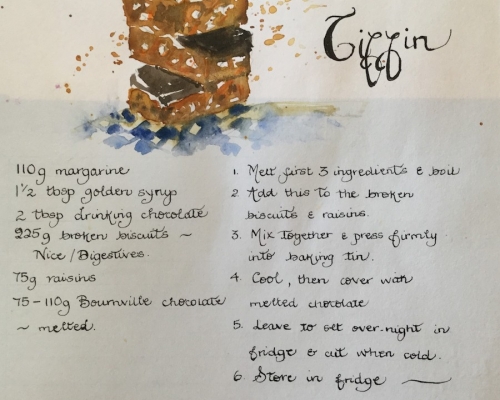 Tiffin
110g margarine
1½ tbsp golden syrup
2 tbsp drinking chocolate
225g broken biscuits ~
Nice / Digestives.
75g raisins
75-110g Bournville chocolate
~ melted.
1. Melt first 3 ingredients & boil
2 Add this to the broken
biscuits & raisins.
3. Mix together & press firmly
into baking tin.
4. Cool, then cover with
melted chocolate
5. Leave to set over-night in
fridge & cut when cold.
6 Store in fridge